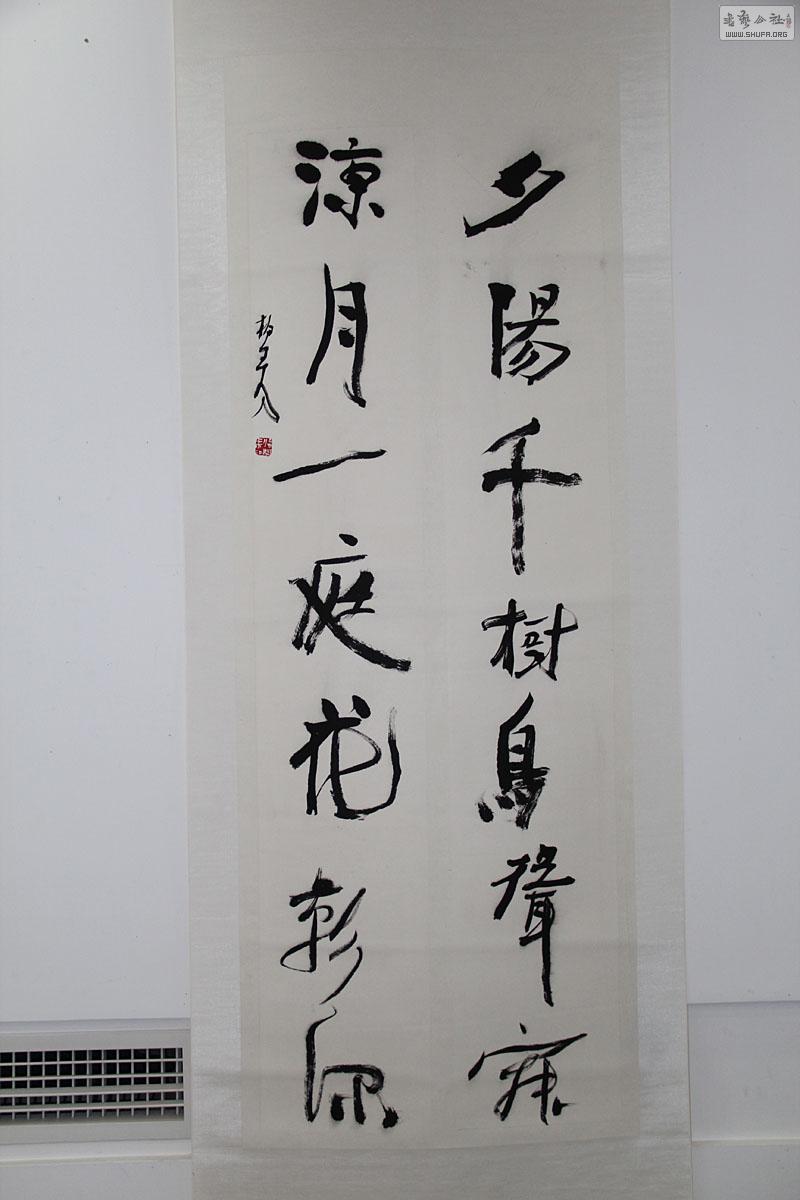 書藝公社
WWW.SHUFA.ORG
夕陽千樹鳥聲寂
涼月一庭花影深